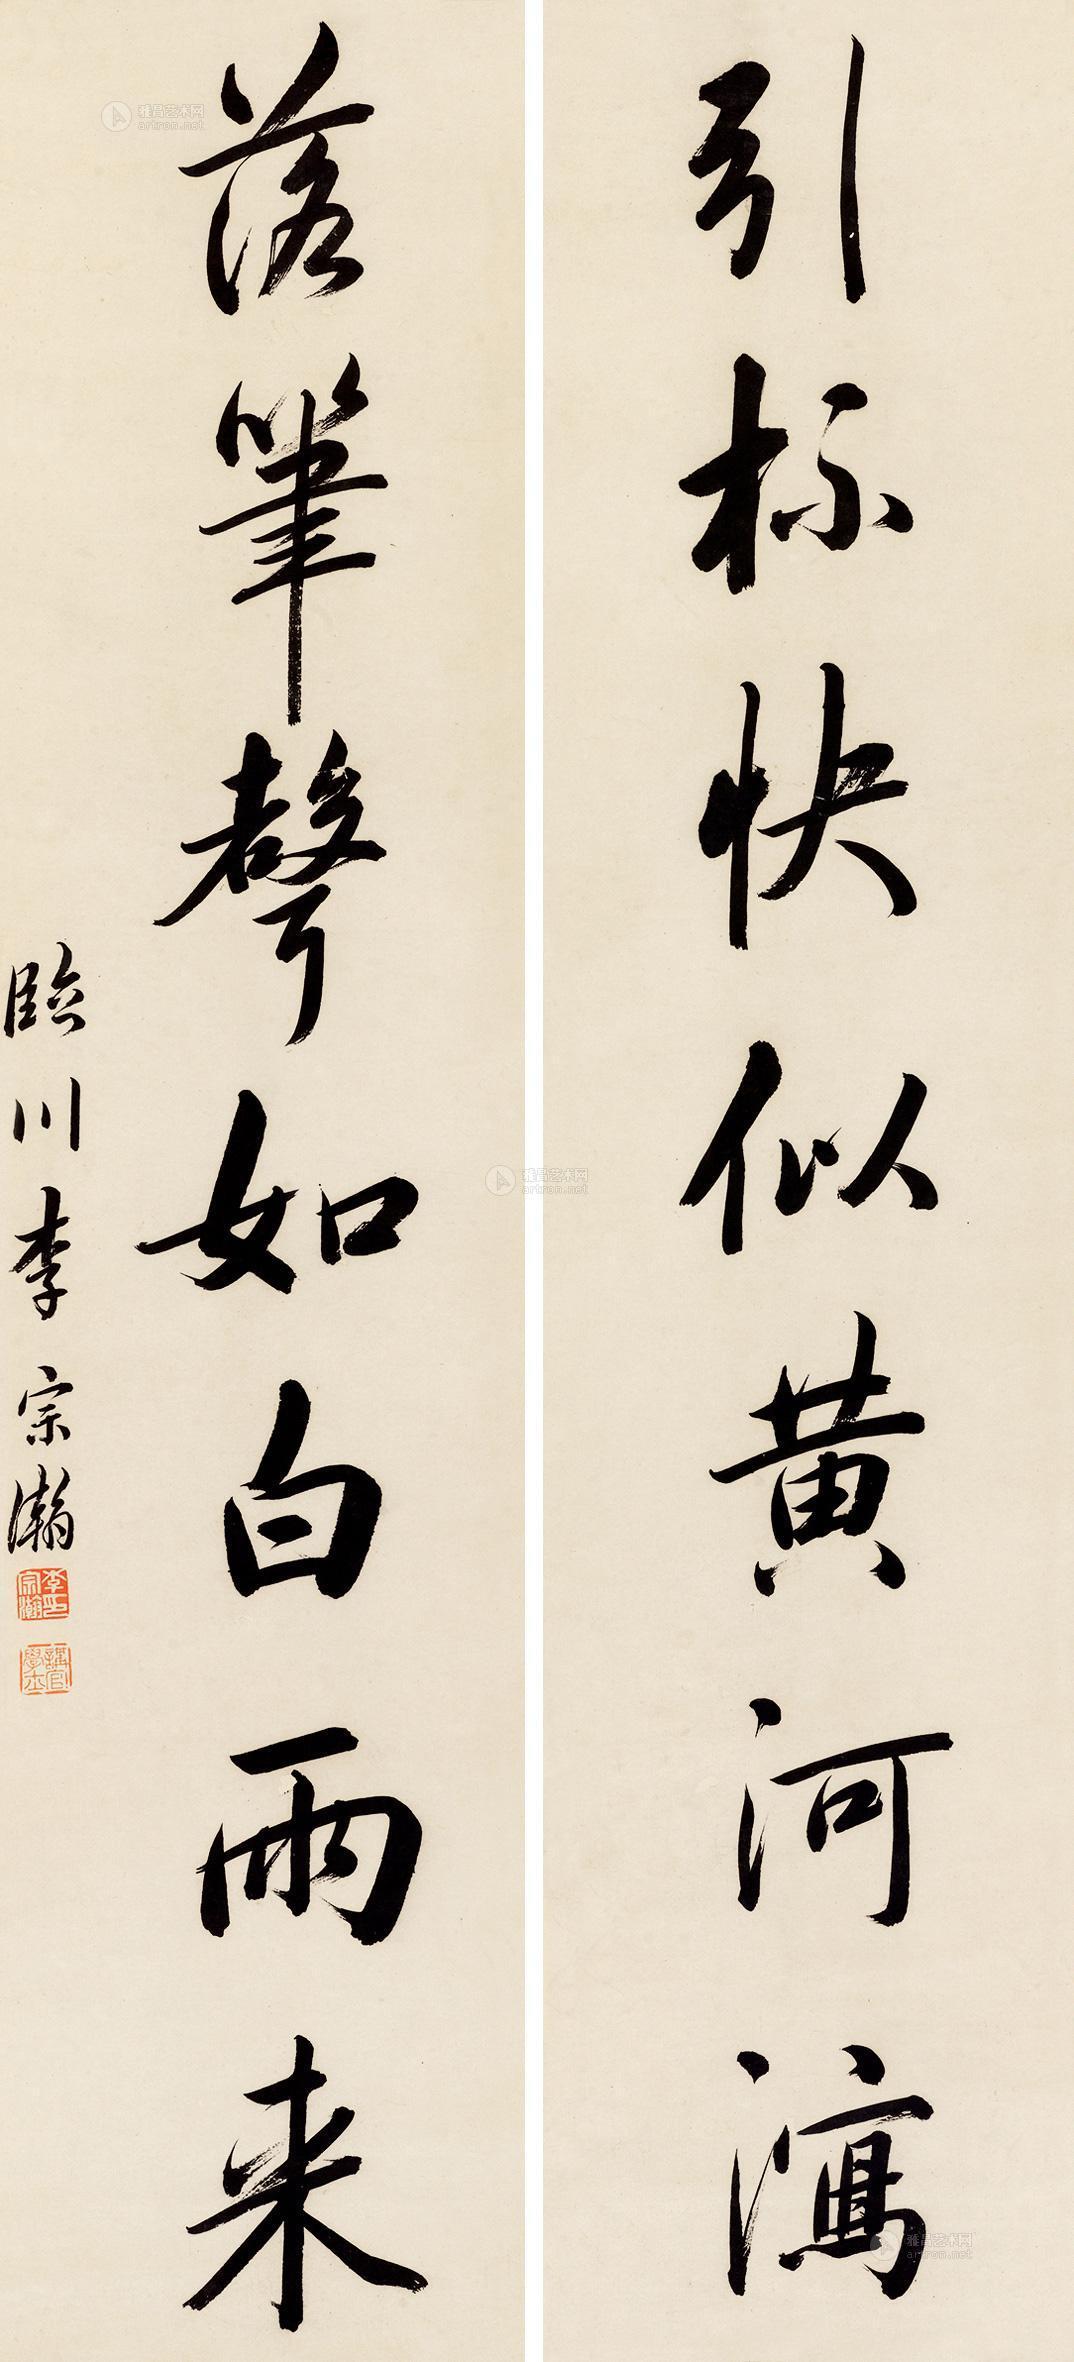 引杯快似黄河瀉
落筆聲如白雨来
臨川李宗瀚
李宗瀚印
講官學士
雅昌艺术网
artron.net
雅昌艺术网
artron.net
雅昌艺术网
artron.net